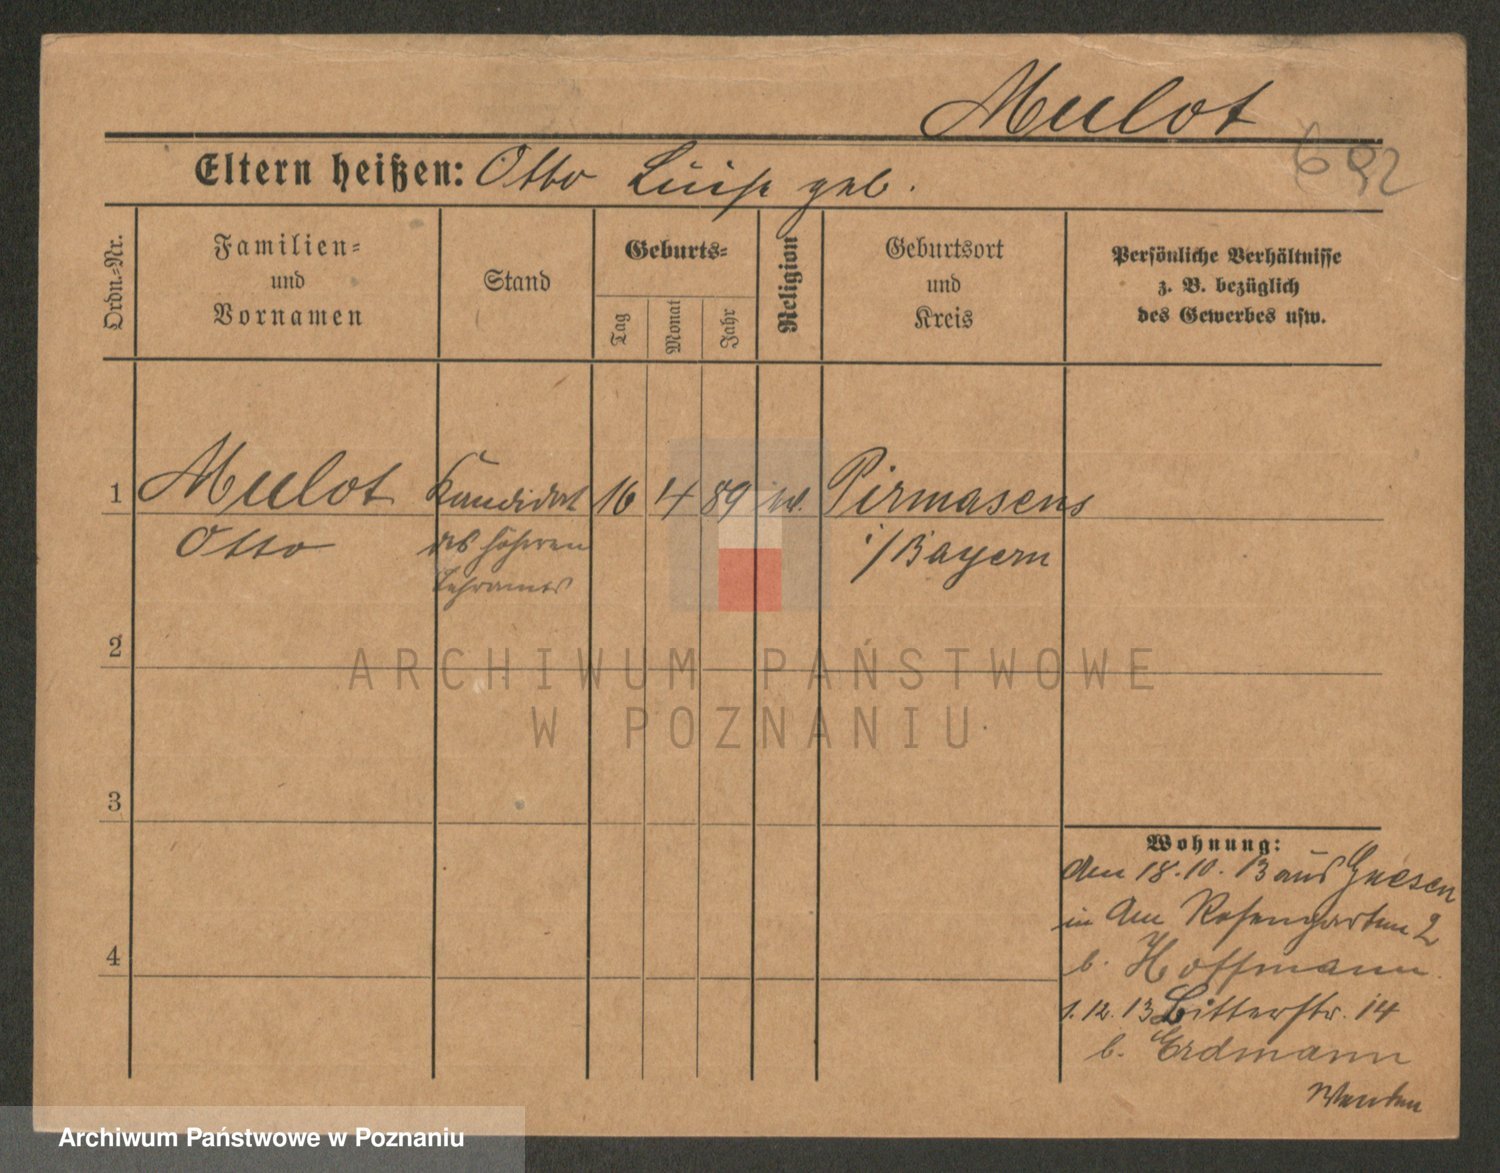 Mulot
692
Eltern heißen: Otto Luise geb.
Ordn.-Nr.
Familien-
und
Vornamen
Stand
Geburts-
Tag
Monat
Jahr
Religion
Geburtsort
und
Kreis
Persönliche Verhältnisse
z. B. bezüglich
des Gewerbes usw.
1 Mulot Kandidat 16 4 89 Pirmasens
Otto des höheren i/Bayern
Lehramts
2
3
4
Wohnung:
den 18.10.13 aus Gnesen
in Am Rosengarten 2
b. Hoffmann.
1.12.13 Bitterstr. 14
b. Erdmann
Wenden
ARCHIWUM PAŃSTWOWE
W POZNANIU
Archiwum Państwowe w Poznaniu